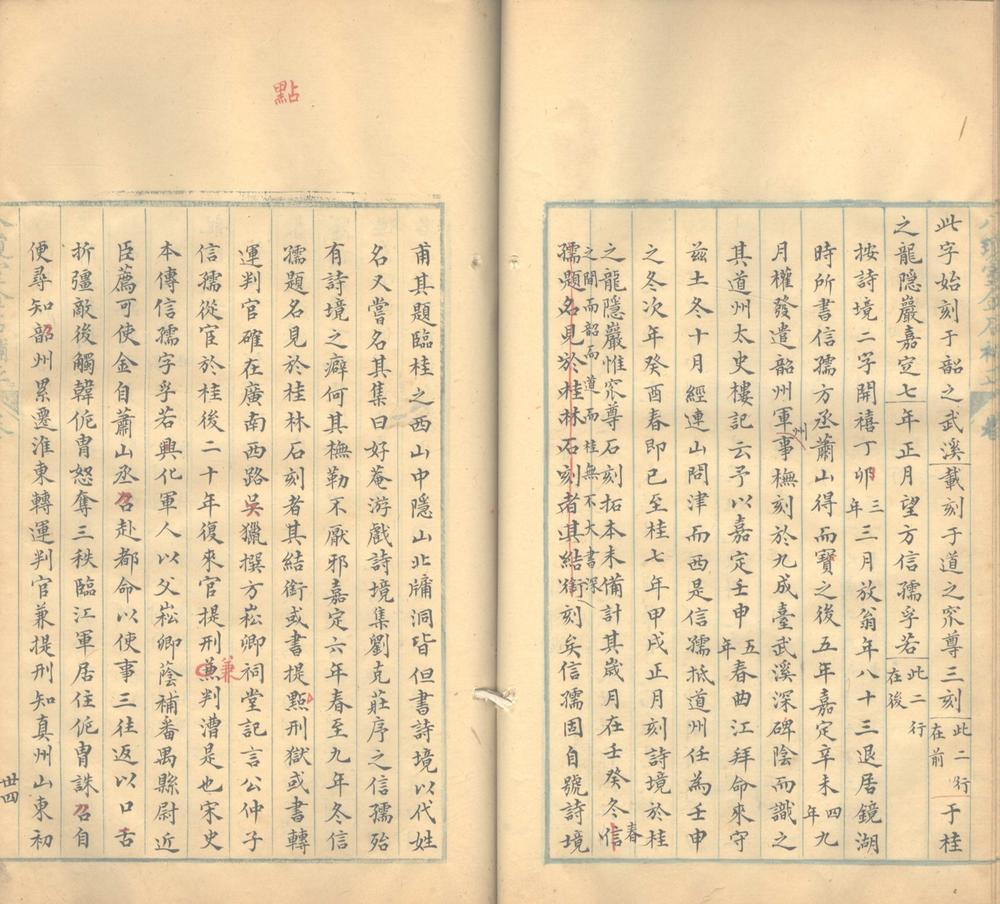 此字始刻于韶之武溪載刻于道之窊尊三刻此二行在前于桂
之龍隱巖嘉定七年正月望方信孺孚若此二行在後
按詩境二字開禧丁卯三年三月放翁年八十三退居鏡湖
時所書信孺方丞蕭山得而寶之後五年嘉定辛未四年九
月權發遣韶州軍州事橅刻於九成臺武溪深碑陰而識之
其道州太史樓記云予以嘉定壬申五年春曲江拜命來守
茲土冬十月經連山問津而西是信孺抵道州任為壬申
之冬次年癸酉春即已至桂七年甲戌正月刻詩境於桂
之龍隱巖惟窊尊石刻拓本未備計其歲月在壬癸冬春信
之間而韶而道而桂無不大書深
孺題名見於桂林石刻者其結銜刻矣信孺固自號詩境
點
甫其題臨桂之西山中隱山北牖洞皆但書詩境以代姓
名又嘗名其集曰好菴游戲詩境集劉克莊序之信孺殆
有詩境之癖何其橅勒不厭邪嘉定六年春至九年冬信
孺題名見於桂林石刻者其結銜或書提點刑獄或書轉
運判官確在廣南西路吳獵撰方崧卿祠堂記言公仲子
信孺從宦於桂後二十年復來官提刑兼判漕是也宋史
兼
本傳信孺字孚若興化軍人以父崧卿蔭補番禺縣尉近
臣薦可使金自蕭山丞召赴都命以使事三往返以口舌
折彊敵後觸韓侂冑怒奪三秩臨江軍居住侂冑誅召自
便尋知韶州累遷淮東轉運判官兼提刑知真州山東初
卅四